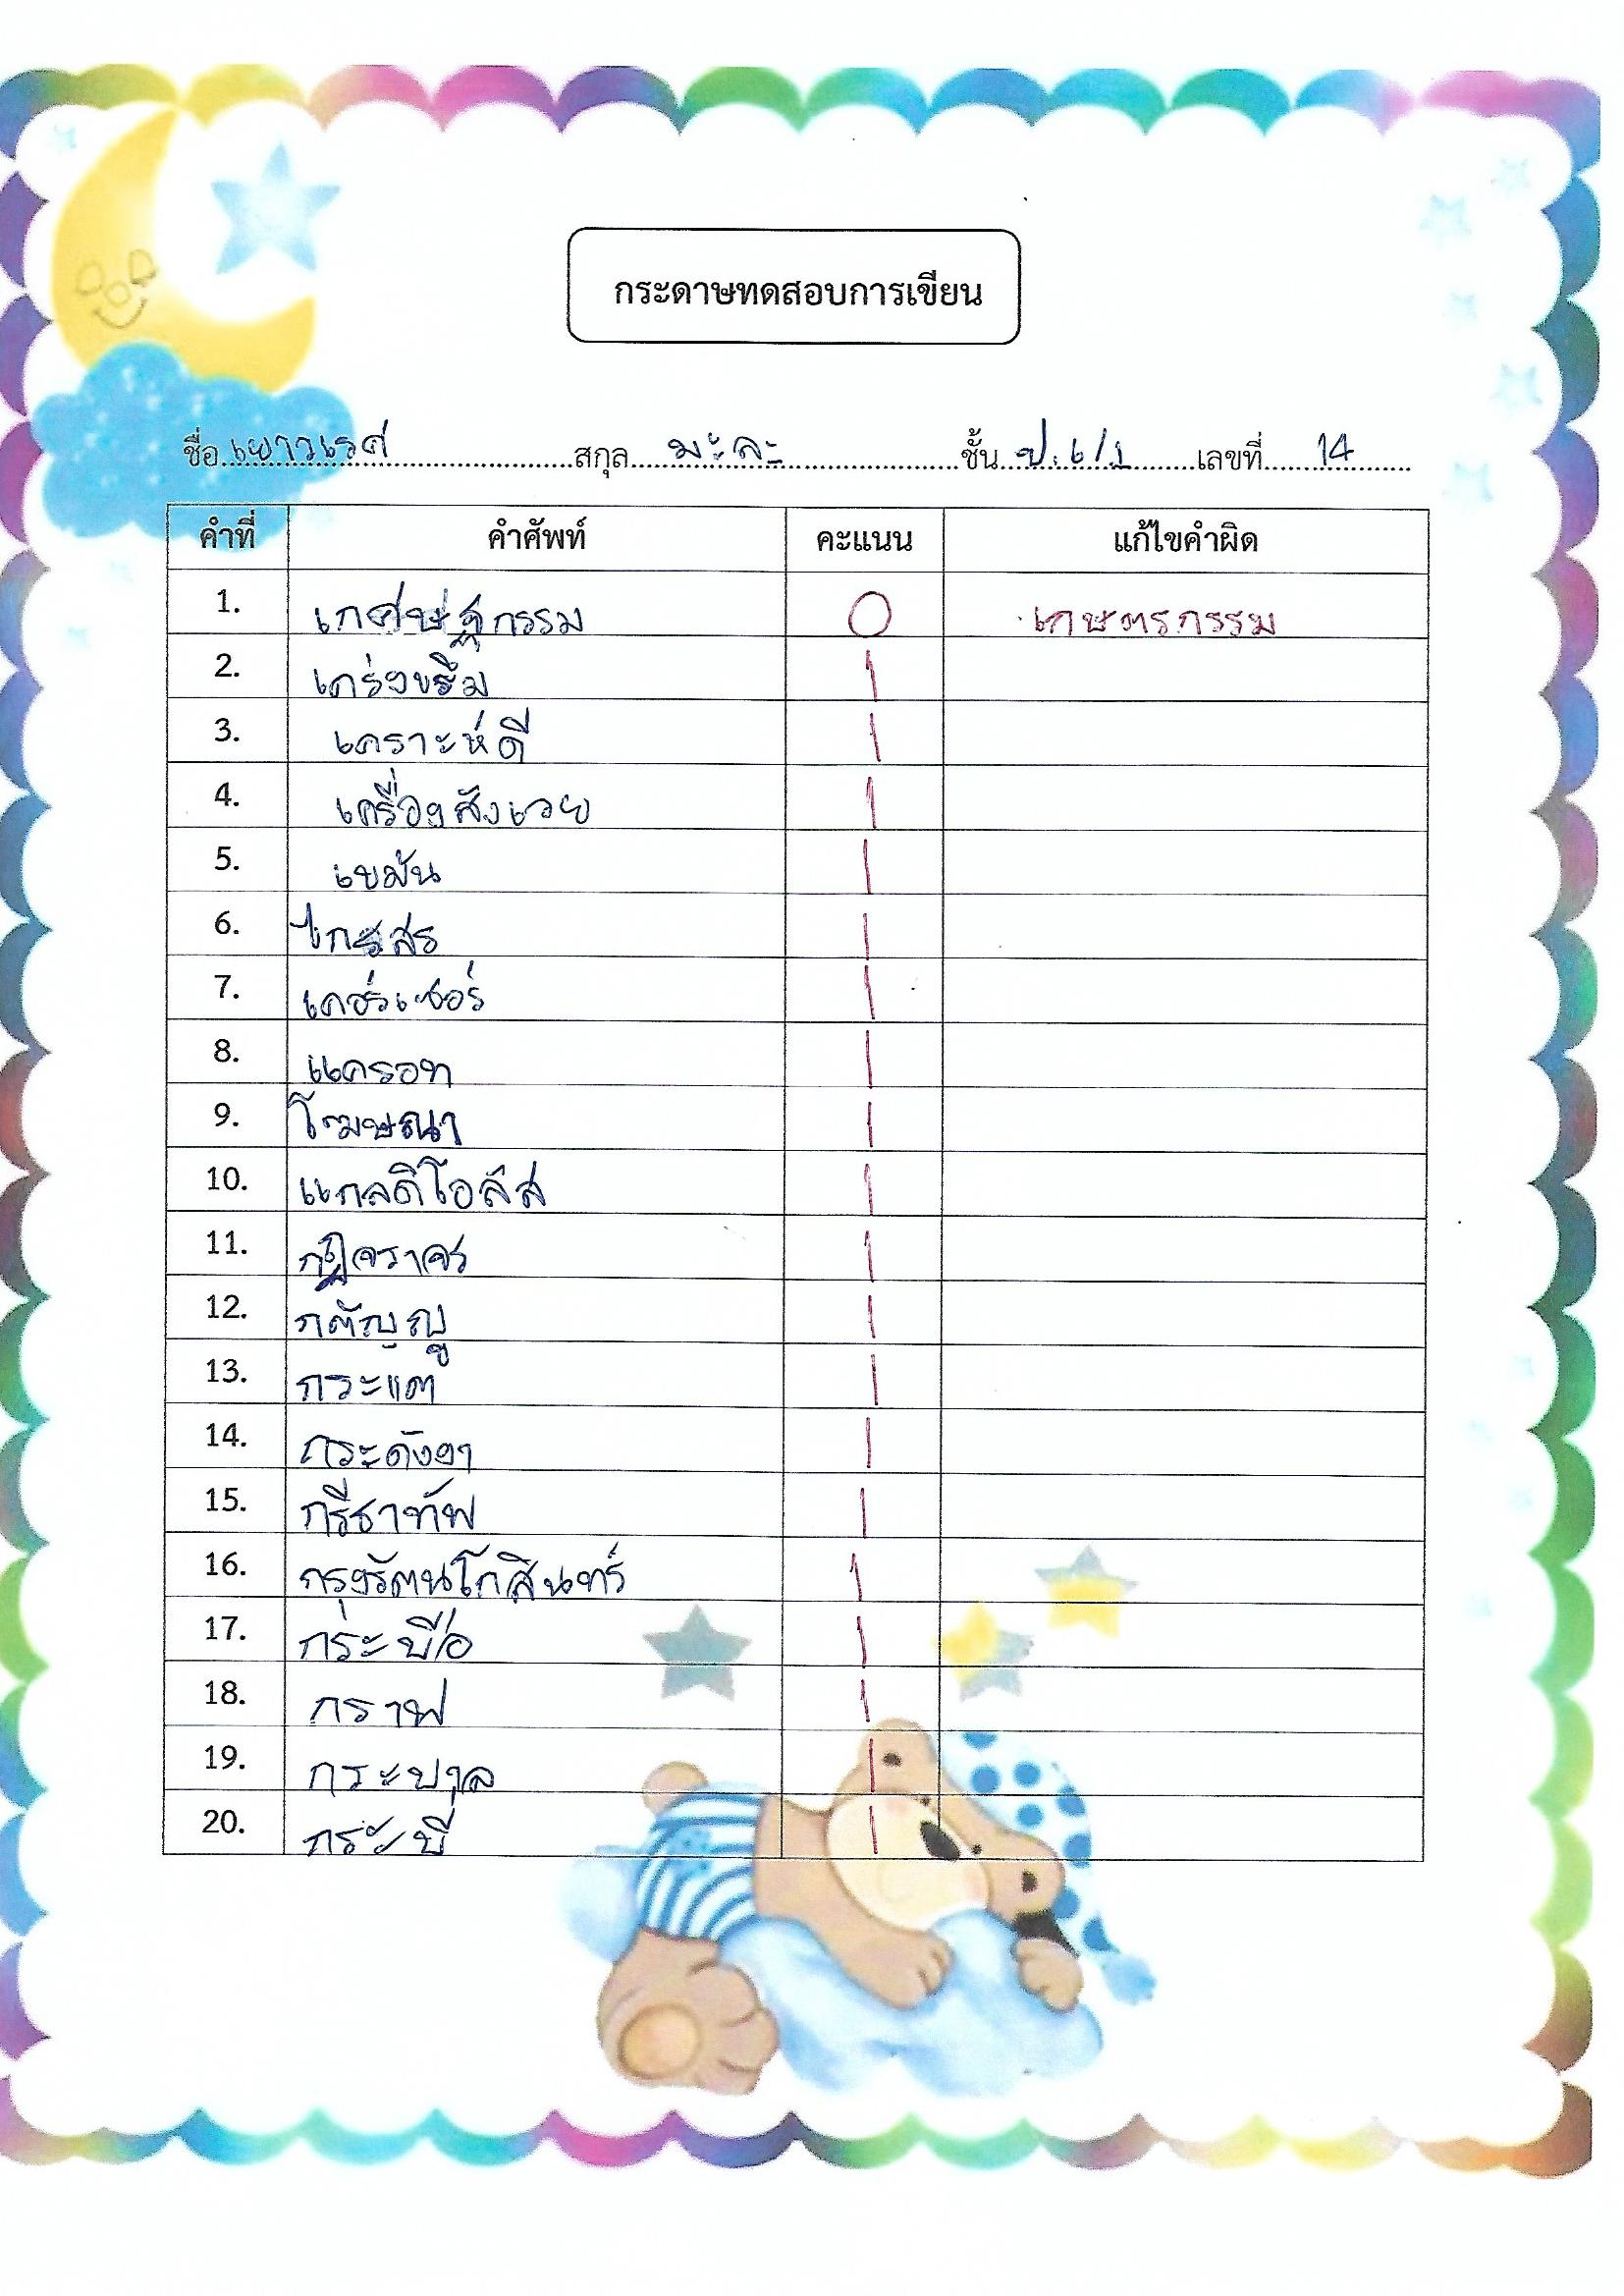 กระดาษทดสอบการเขียน
ชื่อ เยาวเรศ สกุล มะละ ชั้น ป.6/1 เลขที่ 14
คำที่ คำศัพท์ คะแนน แก้ไขคำผิด
1. เกศษฐกรรม 0 เกษตรกรรม
2. เคร่งขรึม 1
3. เคราะห์ดี 1
4. เครื่องสังเวย 1
5. เขม้น 1
6. ไกรสร 1
7. เคอร์เซอร์ 1
8. แครอท 1
9. โฆษณา 1
10. แกลดิโอลัส 1
11. กฎจราจร 1
12. กตัญญู 1
13. กระแต 1
14. กระดังงา 1
15. กรีธาทัพ 1
16. กรุงรัตนโกสินทร์ 1
17. กระบือ 1
18. กราฟ 1
19. กระบาล 1
20. กระบี่ 1